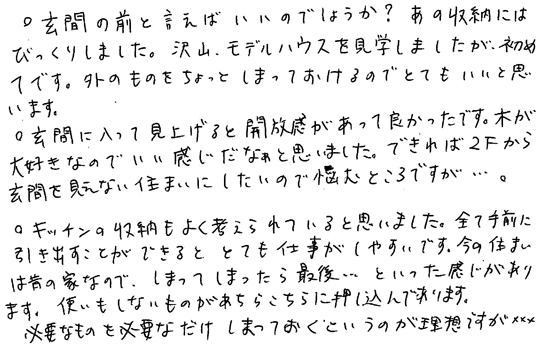 ○玄関の前と言えばいいのでしょうか？あの収納には
びっくりしました。沢山、モデルハウスを見学しましたが、初め
てです。外のものをちょっとしまっておけるのでとてもいいと思
います。
○玄関に入って見上げると開放感があって良かったです。木が
大好きなのでいい感じだなぁと思いました。できれば2Fから
玄関を見えない住まいにしたいので悩むところですが…。
○キッチンの収納もよく考えられていると思いました。全て手前に
引き出すことができるととても仕事がしやすいです。今の住まい
は昔の家なので、しまってしまったら最後…といった感じがあり
ます。使いもしないものがあちらこちらに押し込んであります。
必要なものを必要なだけしまっておくというのが理想ですが×××